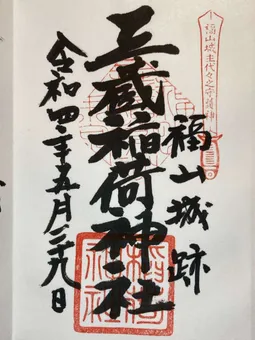 福山城主代々之守護神
福山城跡
三蔵稲荷神社
稲荷
神社
令和四年五月二十九日